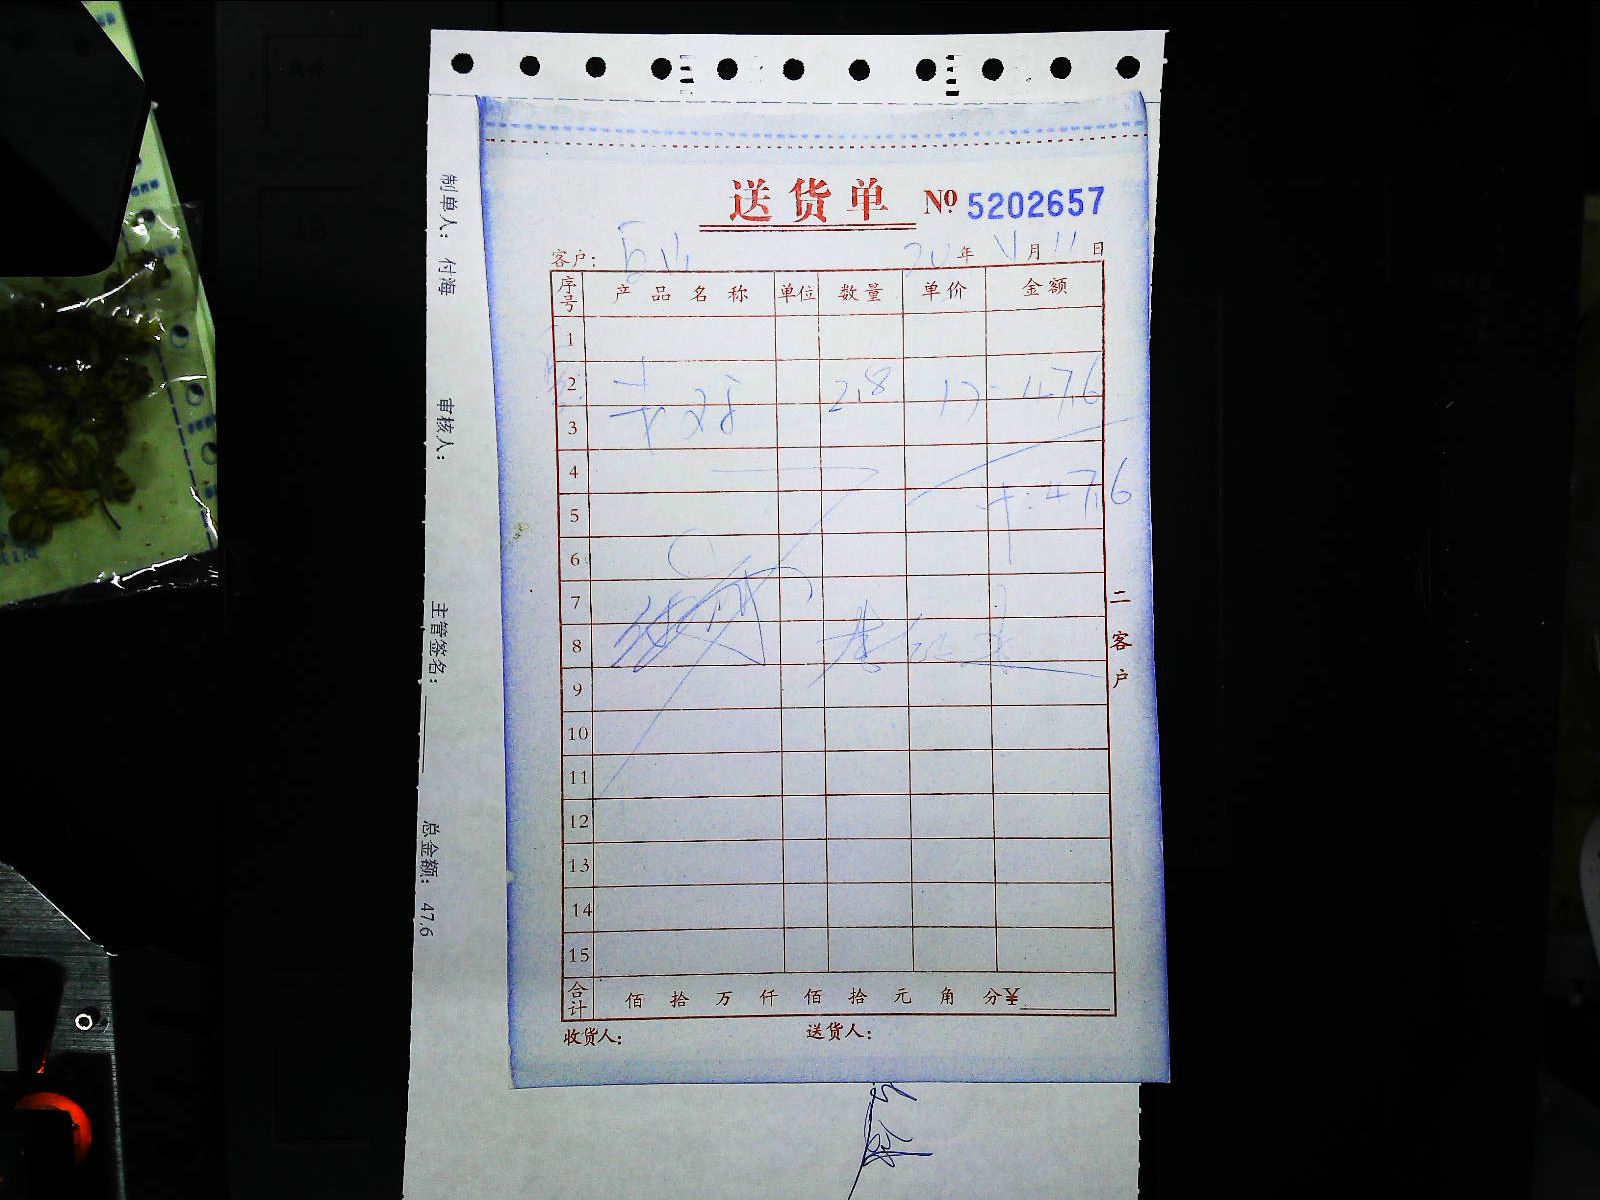 送货单 № 5202657
客户： 年 月 11 日
序号 产品名称 单位 数量 单价 金额
1
2 2.8 17 47.6
3
4
5 47.6
6
7
8
9
10
11
12
13
14
15
合计 佰 拾 万 仟 佰 拾 元 角 分 ¥
收货人： 送货人：
二客户
制单人： 付海 审核人： 主管签名： 总金额： 47.6